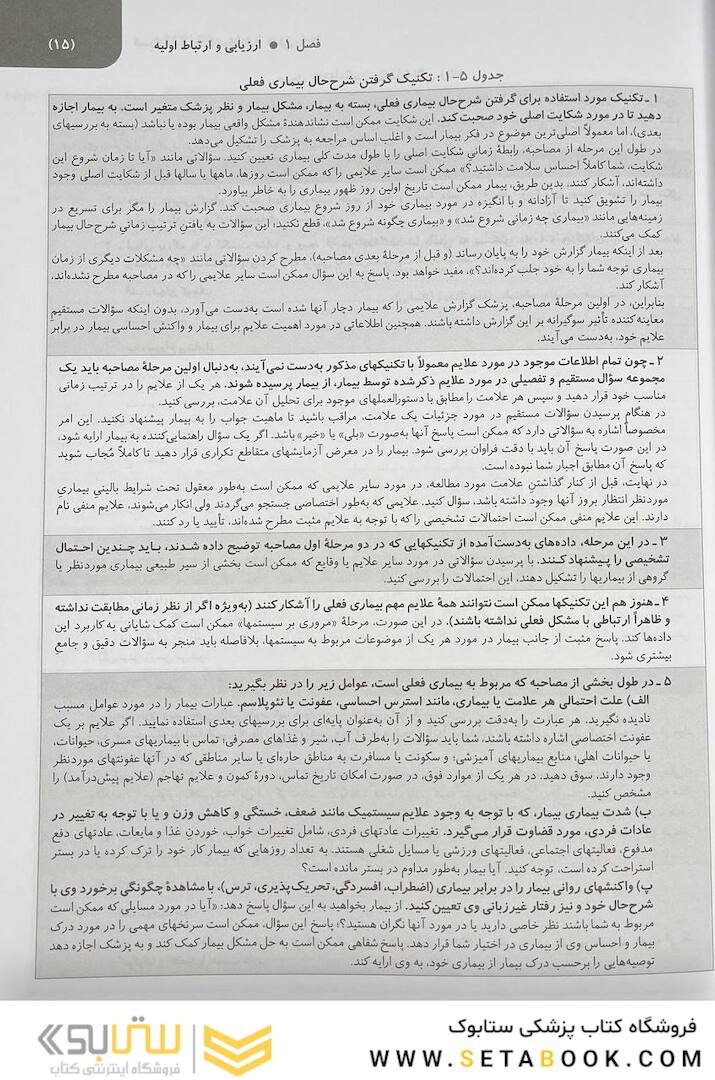 فصل ۱ ● ارزیابی و ارتباط اولیه (۱۵)
جدول ۵-۱ : تکنیک گرفتن شرح‌حال بیماری فعلی
۱ ـ تکنیک مورد استفاده برای گرفتن شرح‌حال بیماری فعلی، بسته به بیمار، مشکل بیمار و نظر پزشک متغیر است. به بیمار اجازه
دهید تا در مورد شکایت اصلی خود صحبت کند. این شکایت ممکن است نشاندهندهٔ مشکل واقعی بیمار بوده یا نباشد (بسته به بررسیهای
بعدی)، اما معمولاً اصلی‌ترین موضوع در فکر بیمار است و اغلب اساس مراجعه به پزشک را تشکیل می‌دهد.
در طول این مرحله از مصاحبه، رابطهٔ زمانیِ شکایت اصلی را با طول مدت کلی بیماری تعیین کنید. سؤالاتی مانند «آیا تا زمان شروع این
شکایت، شما کاملاً احساس سلامت داشتید؟» ممکن است سایر علایمی را که ممکن است روزها، ماهها یا سالها قبل از شکایت اصلی وجود
داشته‌اند، آشکار کنند. بدین طریق، بیمار ممکن است تاریخ اولین روز ظهور بیماری را به خاطر بیاورد.
بیمار را تشویق کنید تا آزادانه و با انگیزه در مورد بیماری خود از روز شروع بیماری صحبت کند. گزارش بیمار را مگر برای تسریع در
زمینه‌هایی مانند «بیماری چه زمانی شروع شد» و «بیماری چگونه شروع شد»، قطع نکنید؛ این سؤالات به یافتن ترتیب زمانیِ شرح‌حال بیمار
کمک می‌کنند.
بعد از اینکه بیمار گزارش خود را به پایان رساند (و قبل از مرحلهٔ بعدی مصاحبه)، مطرح کردن سؤالاتی مانند «چه مشکلات دیگری از زمان
بیماری توجه شما را به خود جلب کرده‌اند؟»، مفید خواهد بود. پاسخ به این سؤال ممکن است سایر علایمی را که در مصاحبه مطرح نشده‌اند،
آشکار کند.
بنابراین، در اولین مرحلهٔ مصاحبه، پزشک گزارش علایمی را که بیمار دچار آنها شده است به‌دست می‌آورد، بدون اینکه سؤالات مستقیمِ
معاینه‌کننده تأثیر سوگیرانه بر این گزارش داشته باشند. همچنین اطلاعاتی در مورد اهمیت علایم برای بیمار و واکنش احساسی بیمار در برابر
علایم خود، به‌دست می‌آیند.
۲ ـ چون تمام اطلاعات موجود در مورد علایم معمولاً با تکنیکهای مذکور به‌دست نمی‌آیند، به‌دنبال اولین مرحلهٔ مصاحبه باید یک
مجموعه سؤال مستقیم و تفصیلی در مورد علایم ذکر شده توسط بیمار، از بیمار پرسیده شوند. هر یک از علایم را در ترتیب زمانی
مناسب خود قرار دهید و سپس هر علامت را مطابق با دستورالعملهای موجود برای تحلیل آن علامت، بررسی کنید.
در هنگام پرسیدن سؤالات مستقیم در مورد جزئیات یک علامت، مراقب باشید تا ماهیت جواب را به بیمار پیشنهاد نکنید. این امر
مخصوصاً اشاره به سؤالاتی دارد که ممکن است پاسخ آنها به‌صورت «بلی» یا «خیر» باشد. اگر یک سؤال راهنمایی‌کننده به بیمار ارایه شود،
در این صورت پاسخ آن باید با دقت فراوان بررسی شود. بیمار را در معرض آزمایشهای متقاطع تکراری قرار دهید تا کاملاً مُجاب شوید
که پاسخ آن مطابق اجبار شما نبوده است.
در نهایت، قبل از کنار گذاشتنِ علامت مورد مطالعه، در مورد سایر علایمی که ممکن است به‌طور معقول تحت شرایط بالینیِ بیماریِ
موردنظر انتظار بروز آنها وجود داشته باشد، سؤال کنید. علایمی که به‌طور اختصاصی جستجو می‌گردند ولی انکار می‌شوند، علایم منفی نام
دارند. این علایم منفی ممکن است احتمالات تشخیصی را که با توجه به علایم مثبت مطرح شده‌اند، تأیید یا رد کنند.
۳ ـ در این مرحله، داده‌های به‌دست‌آمده از تکنیکهایی که در دو مرحلهٔ اول مصاحبه توضیح داده شدند، باید چندین احتمال
تشخیصی را پیشنهاد کنند. با پرسیدن سؤالاتی در مورد سایر علایم یا وقایع که ممکن است بخشی از سیر طبیعی بیماری موردنظر یا
گروهی از بیماریها را تشکیل دهند، این احتمالات را بررسی کنید.
۴ ـ هنوز هم این تکنیکها ممکن است نتوانند همهٔ علایم مهم بیماری فعلی را آشکار کنند (به‌ویژه اگر از نظر زمانی مطابقت نداشته
و ظاهراً ارتباطی با مشکل فعلی نداشته باشند). در این صورت، مرحلهٔ «مروری بر سیستمها» ممکن است کمک شایانی به کاربرد این
داده‌ها کند. پاسخ مثبت از جانب بیمار در مورد هر یک از موضوعات مربوط به سیستمها، بلافاصله باید منجر به سؤالات دقیق و جامعِ
بیشتری شود.
۵ ـ در طول بخشی از مصاحبه که مربوط به بیماری فعلی است، عوامل زیر را در نظر بگیرید:
الف) علت احتمالی هر علامت یا بیماری، مانند استرس احساسی، عفونت یا نئوپلاسم. عبارات بیمار را در مورد عوامل مسبب
نادیده نگیرید. هر عبارت را به‌دقت بررسی کنید و از آن به‌عنوان پایه‌ای برای بررسیهای بعدی استفاده نمایید. اگر علایم بر یک
عفونت اختصاصی اشاره داشته باشند، شما باید سؤالات را به‌طرف آب، شیر و غذاهای مصرفی؛ تماس با بیماریهای مسری، حیوانات،
یا حیوانات اهلی؛ منابع بیماریهای آمیزشی؛ و سکونت یا مسافرت به مناطق حاره‌ای یا سایر مناطقی که در آنها عفونتهای موردنظر
وجود دارند، سوق دهید. در هر یک از موارد فوق، در صورت امکان تاریخ تماس، دورهٔ کمون و علایم تهاجم (علایم پیش‌درآمد) را
مشخص کنید.
ب) شدت بیماری بیمار، که با توجه به وجود علایم سیستمیک مانند ضعف، خستگی و کاهش وزن و یا با توجه به تغییر در
عادات فردی، مورد قضاوت قرار می‌گیرد. تغییرات عادتهای فردی، شامل تغییرات خواب، خوردنِ غذا و مایعات، عادتهای دفع
مدفوع، فعالیتهای اجتماعی، فعالیتهای ورزشی یا مسایل شغلی هستند. به تعداد روزهایی که بیمار کار خود را ترک کرده یا در بستر
استراحت کرده است، توجه کنید. آیا بیمار به‌طور مداوم در بستر مانده است؟
پ) واکنشهای روانی بیمار را در برابر بیماری (اضطراب، افسردگی، تحریک‌پذیری، ترس)، با مشاهدهٔ چگونگی برخورد وی با
شرح‌حال خود و نیز رفتار غیرزبانی وی تعیین کنید. از بیمار بخواهید به این سؤال پاسخ دهد: «آیا در مورد مسایلی که ممکن است
مربوط به شما باشند نظر خاصی دارید یا در مورد آنها نگران هستید؟»؛ پاسخ این سؤال، ممکن است سرنخهای مهمی را در مورد درک
بیمار و احساس وی از بیماری در اختیار شما قرار دهد. پاسخ شفاهی ممکن است به حل مشکل بیمار کمک کند و به پزشک اجازه دهد
توصیه‌هایی را برحسب درک بیمار از بیماری خود، به وی ارایه کند.
فروشگاه کتاب پزشکی ستابوک
WWW.SETABOOK.COM
ستابوک
فروشگاه اینترنتی کتاب